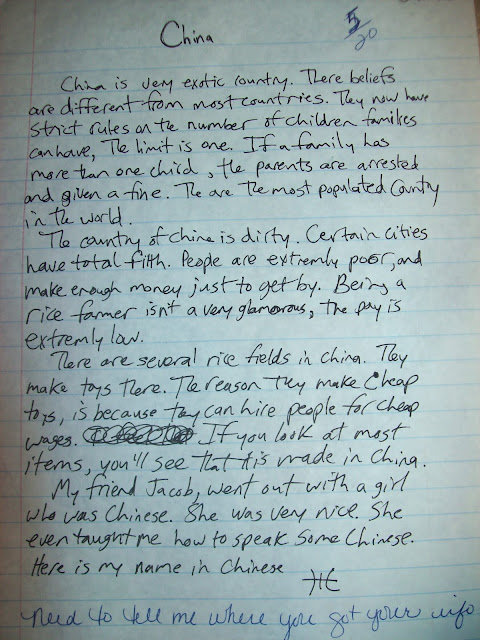 China
5/20
China is very exotic country. There beliefs
are different from most countries. They now have
strict rules on the number of children families
can have, The limit is one. If a family has
more than one child, the parents are arrested
and given a fine. The are the most populated Country
in the world.
The country of China is dirty. Certain cities
have total filth. People are extremly poor, and
make enough money just to get by. Being a
rice farmer isn't a very glamorous, the pay is
extremly low.
There are several rice fields in China. They
make toys there. The reason they make Cheap
toys, is because they can hire people for cheap
wages. If you look at most
items, you'll see that it is made in China.
My friend Jacob, went out with a girl
who was Chinese. She was very nice. She
even taught me how to speak some Chinese.
Here is my name in Chinese
need to tell me where you got your info